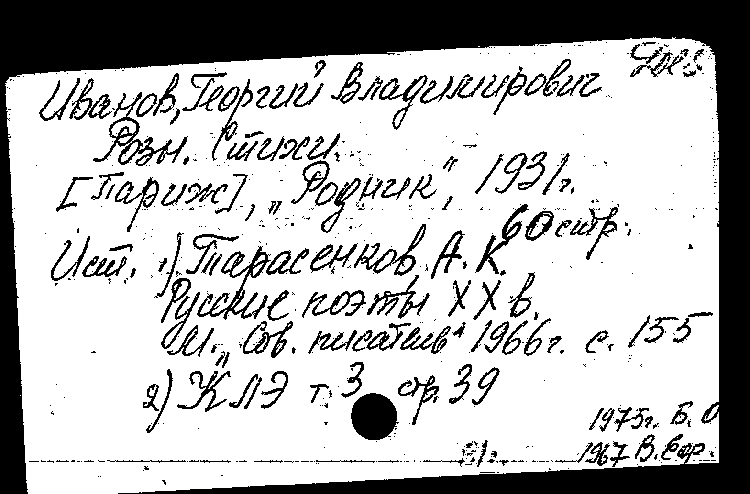 Иванов, Георгий Владимирович
Розы. Стихи.
[Париж], „Родник“, 1931г.
60 стр.
Ист. 1) Тарасенков, А. К.
Русские поэты XX в.
М. „Сов. писатель“ 1966г. с. 155
2) КЛЭ т. 3 стр. 39
1975г. Б. О
1967 В. Бар.